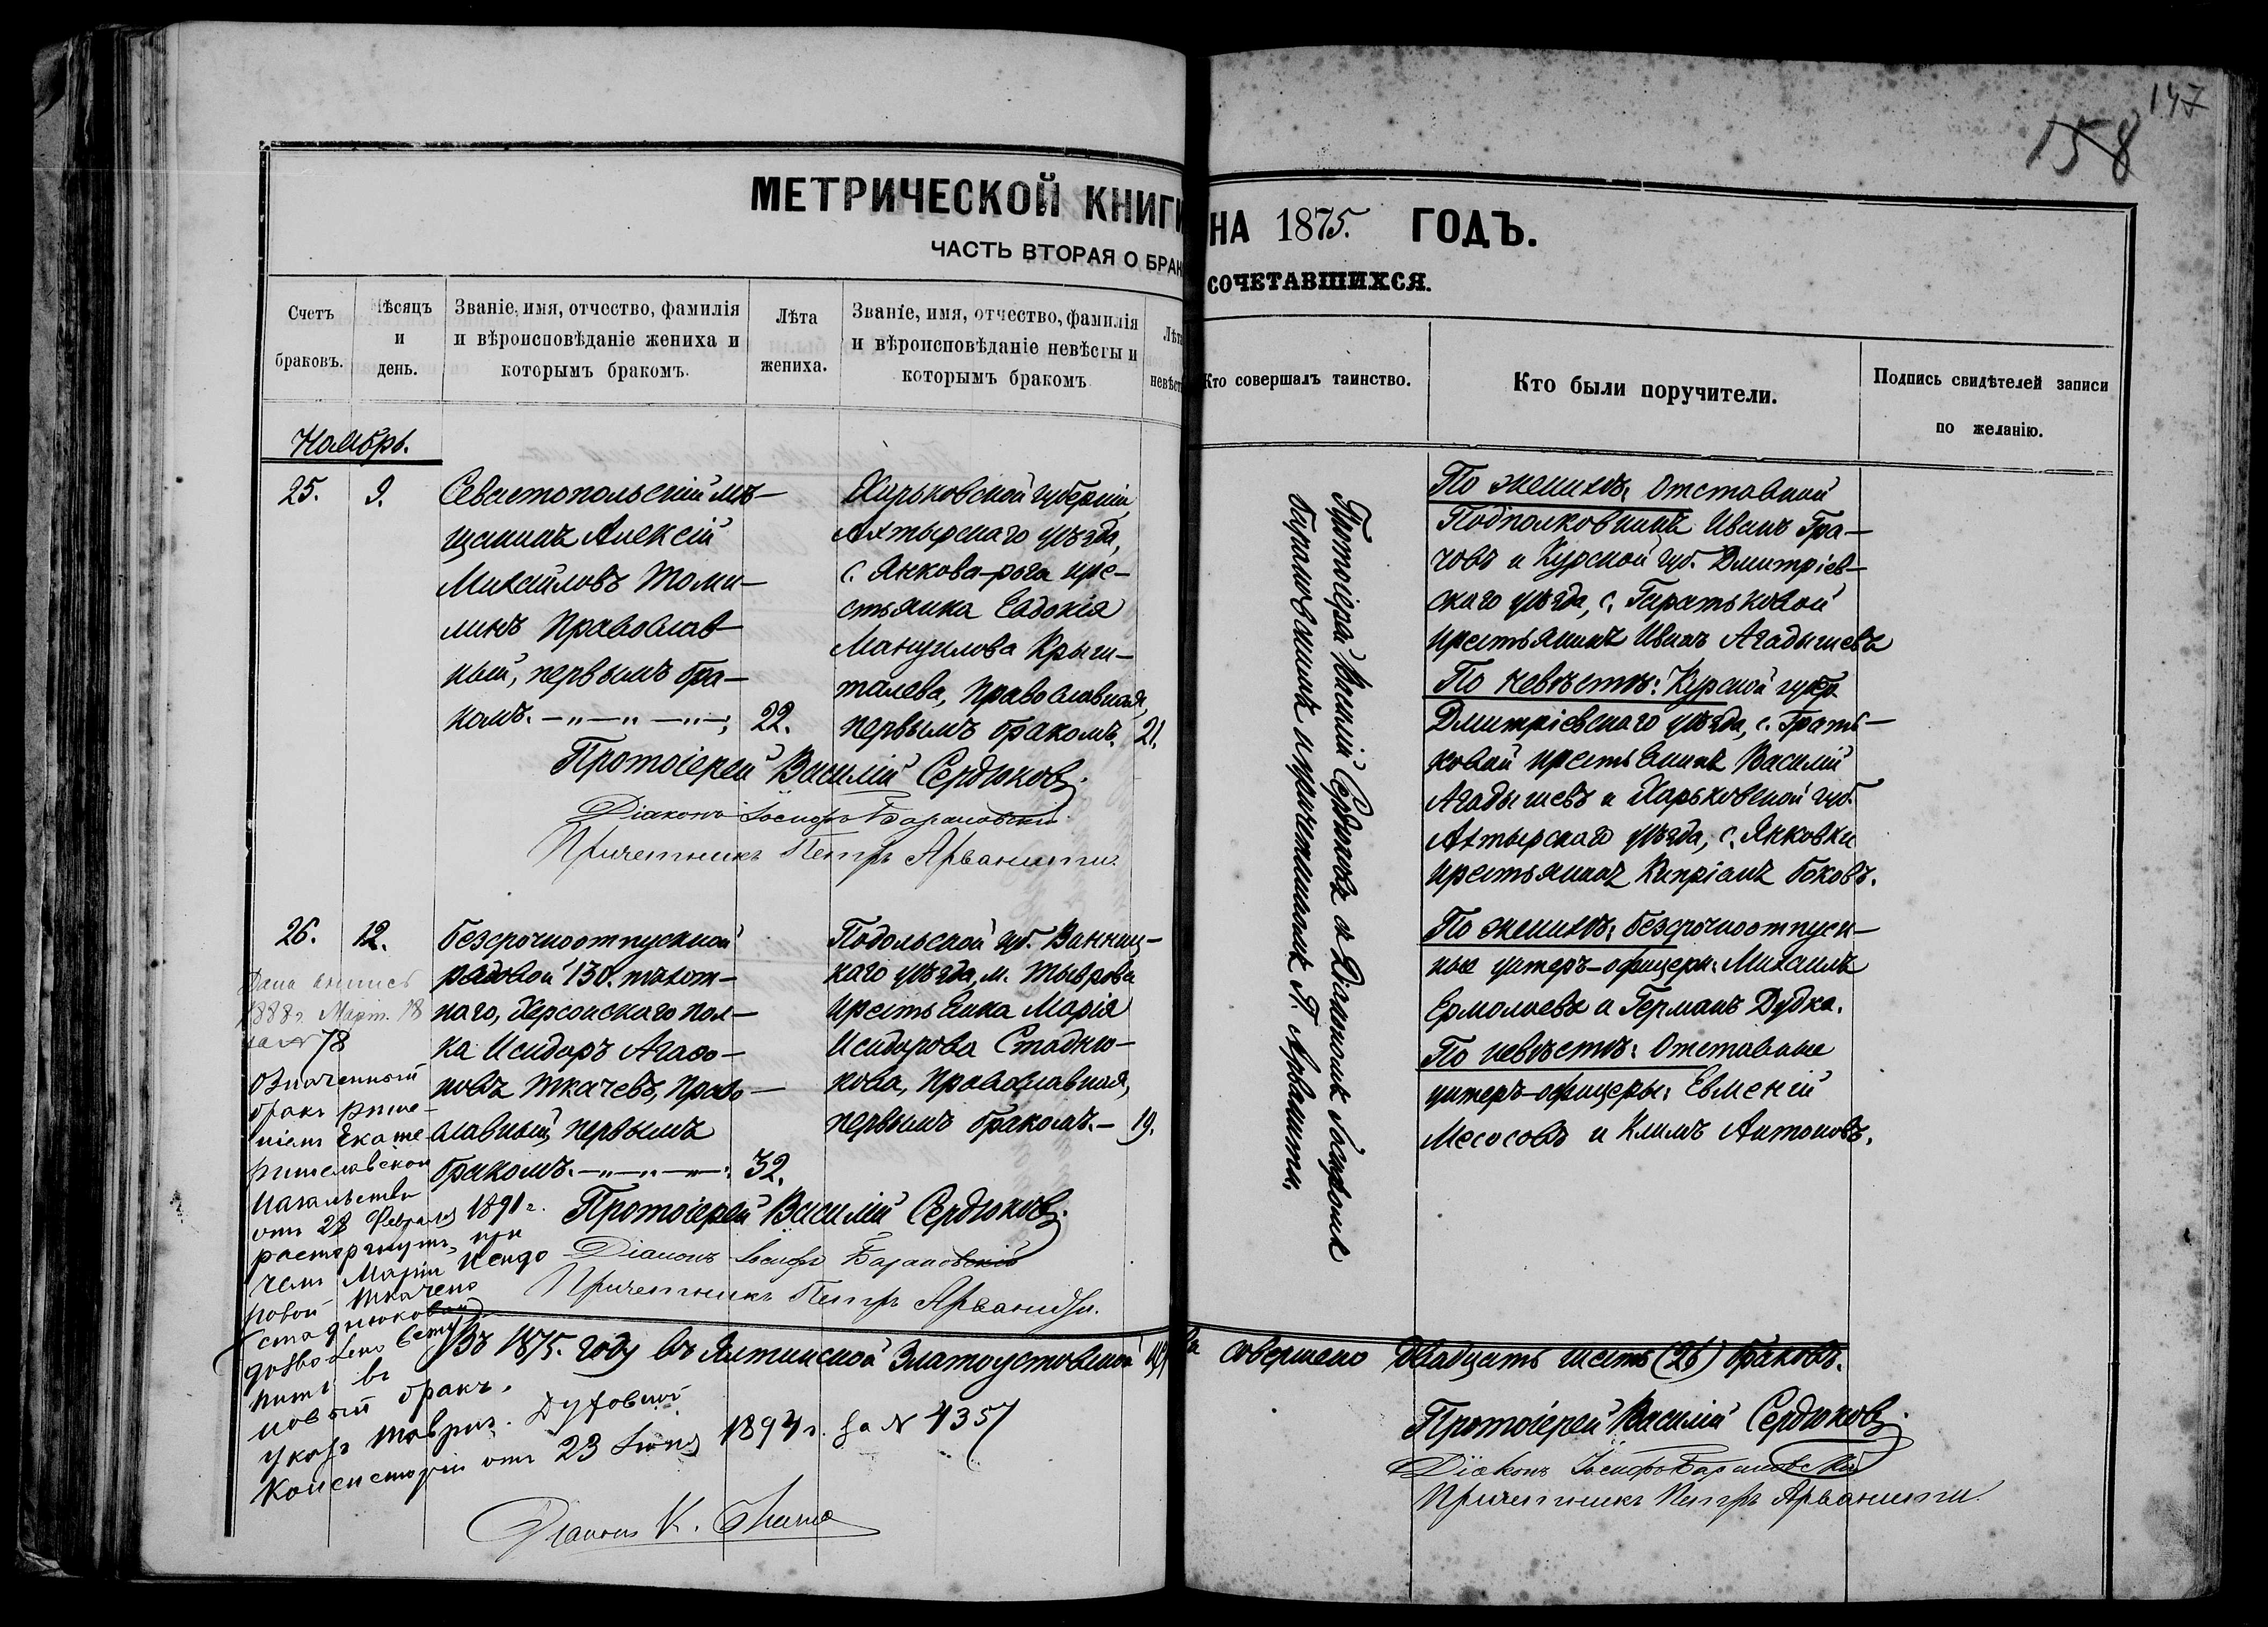 147
158
МЕТРИЧЕСКОЙ КНИГИ НА 1875. ГОДЪ.
ЧАСТЬ ВТОРАЯ О БРАКОСОЧЕТАВШИХСЯ.
Счетъ браковъ.
Мѣсяцъ и день.
Званіе, имя, отчество, фамилія и вѣроисповѣданіе жениха и которымъ бракомъ.
Лѣта жениха.
Званіе, имя, отчество, фамилія и вѣроисповѣданіе невѣсты и которымъ бракомъ
Лѣта невѣсты
Кто совершалъ таинство.
Кто были поручители.
Подпись свидѣтелей записи по желанію.
Ноябрь.
25. 9.
Севастопольскій мѣ-
щанинъ Алексій
Михайловъ Томи-
линъ Православ
ный, первымъ бра-
комъ. 22.
Харьковской губерніи,
Ахтырскаго уѣзда,
с. Янкова-рога кре-
стьянка Евдокія
Мануилова Крыш-
талева, Православная,
первымъ бракомъ. 21.
Протоіерей Василій Сердюковъ.
Діаконъ Іосифъ Барановскій
Причетникъ Петръ Арванитти.
Протоіерей Василій Сердюковъ съ Діакономъ Іосифомъ
Барановскимъ и причетникомъ П. Арванитти.
По женихѣ: Отставной
Подполковникъ Иванъ Гра-
човъ и Курской губ. Дмитріев-
скаго уѣзда, с.
крестьянинъ Иванъ Агадышевъ
По невѣстѣ: Курской губер
Дмитріевскаго уѣзда, с.
ковой крестьянинъ Василій
Агадышевъ и Харьковской губ.
Ахтырскаго уѣзда, с. Янковки
крестьянинъ Кипріанъ Боковъ.
26. 12.
Безсрочноотпускной
рядовой 130. пѣхот-
наго, Херсонскаго пол-
ка Исидоръ Агафо-
новъ Ткачевъ, Право-
славный, первымъ
бракомъ. 32.
Подольской губ. Винниц-
каго уѣзда, м. Тыврова
крестьянка Марія
Исидорова Стадню-
кова, Православная,
первымъ бракомъ. - 19.
По женихѣ: безсрочноотпуск-
ные унтеръ-офицеры: Михаилъ
Ермолаевъ и Германъ Дудка.
По невѣстѣ: Отставные
унтеръ-офицеры: Евменій
Месосовъ и Климъ Антоновъ.
Протоіерей Василій Сердюковъ.
Діаконъ Іосифъ Барановскій
Причетникъ Петръ Арваниди.
Дана выпись
1888 г. Март. 18
за № 78
Означенный
бракъ рѣше-
ніемъ Екате-
ринославскаго
Начальства
отъ 28 Февраля 1891 г.
расторгнутъ, при
чемъ Маріи Исидо
ровой Ткачево
(Стаднюковой)
дозволено всту
пить въ
новый бракъ.
указъ Тавρич. Духовной
Консисторіи отъ 23 Іюня 1894 г. за № 4357
Діаконъ К.
Въ 1875. году въ Ялтинской Златоустовской совершено двадцать шесть (26) браковъ.
Протоіерей Василій Сердюковъ.
Діаконъ Іосифъ Барановскій
Причетникъ Петръ Арванитти.